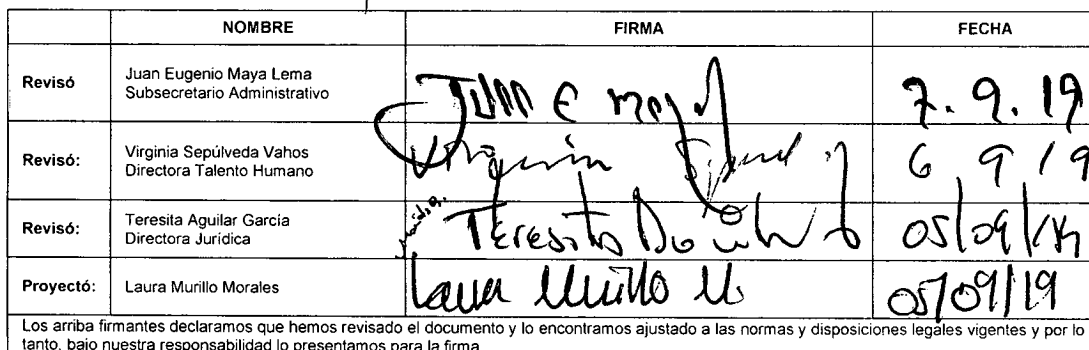 NOMBRE FIRMA FECHA
Revisó Juan Eugenio Maya Lema
Subsecretario Administrativo
Juan E maya 7. 9. 19
Revisó: Virginia Sepúlveda Vahos
Directora Talento Humano
Virginia 6 9 19
Revisó: Teresita Aguilar García
Directora Jurídica
Teresita 05/09/19
Proyectó: Laura Murillo Morales Laura Murillo M 05/09/19
Los arriba firmantes declaramos que hemos revisado el documento y lo encontramos ajustado a las normas y disposiciones legales vigentes y por lo
tanto, bajo nuestra responsabilidad lo presentamos para la firma